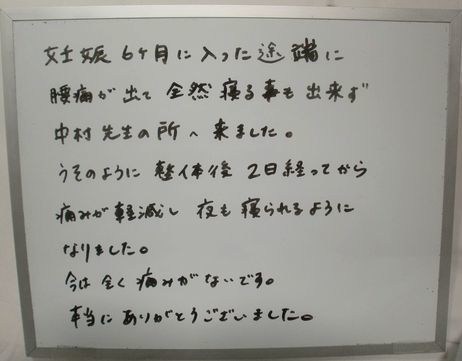 妊娠6ケ月に入った途端に
腰痛が出て全然寝る事も出来ず
中村先生の所へ来ました。
うそのように整体後2日経ってから
痛みが軽減し夜も寝られるように
なりました。
今は全く痛みがないです。
本当にありがとうございました。